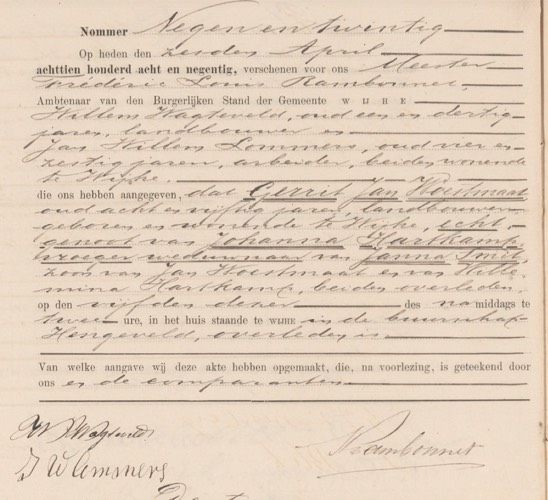 Nommer Negen en twintig
Op heden den zesden April
achttien honderd acht en negentig, verschenen voor ons Meester
Fréderic Louis Rambonnet,
Ambtenaar van den Burgerlijken Stand der Gemeente WIJHE
Willem Wagteveld, oud een en dertig
jaren, landbouwer en
Jan Willem Lommers, oud vier en
zestig jaren, arbeider, beiden wonende
te Wijhe.
die ons hebben aangegeven, dat Gerrit Jan Woestmaat
oud acht en vijftig jaren, landbouwer
geboren en wonende te Wijhe, echt-
genoot van Johanna Hartkamp,
vroeger weduwnaar van Janna Smit,
zoon van Jan Woestmaat en van Wilhe
mina Hartkamp, beiden overleden.
op den vijfden dezer des namiddags te
twee ure, in het huis staande te WIJHE in de buurschap
Hengeveld, overleden is
Van welke aangave wij deze akte hebben opgemaakt, die, na voorlezing, is geteekend door
ons en de comparanten
W Wagteveld
J W Lemmers
Rambonnet